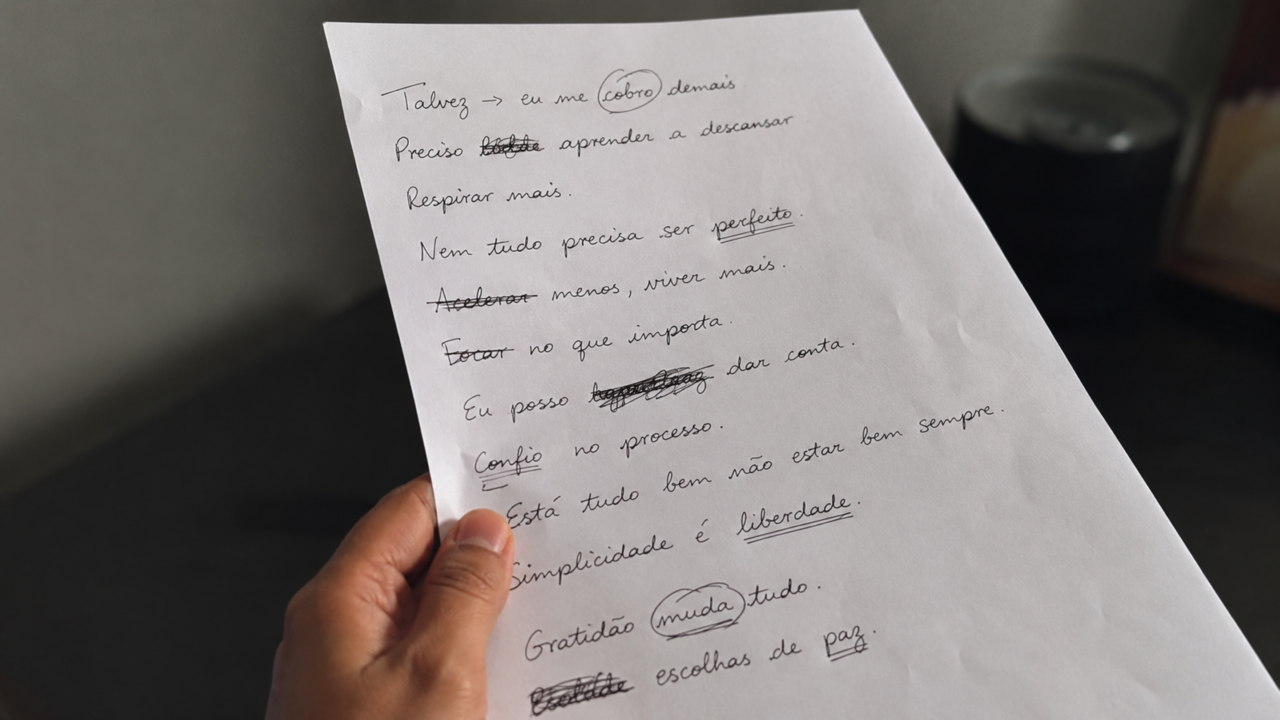 Talvez → eu me cobro demais
Preciso aprender a descansar
Respirar mais.
Nem tudo precisa ser perfeito.
Acelerar menos, viver mais.
Focar no que importa.
Eu posso dar conta.
Confio no processo.
Está tudo bem não estar bem sempre.
Simplicidade é liberdade.
Gratidão muda tudo.
escolhas de paz.